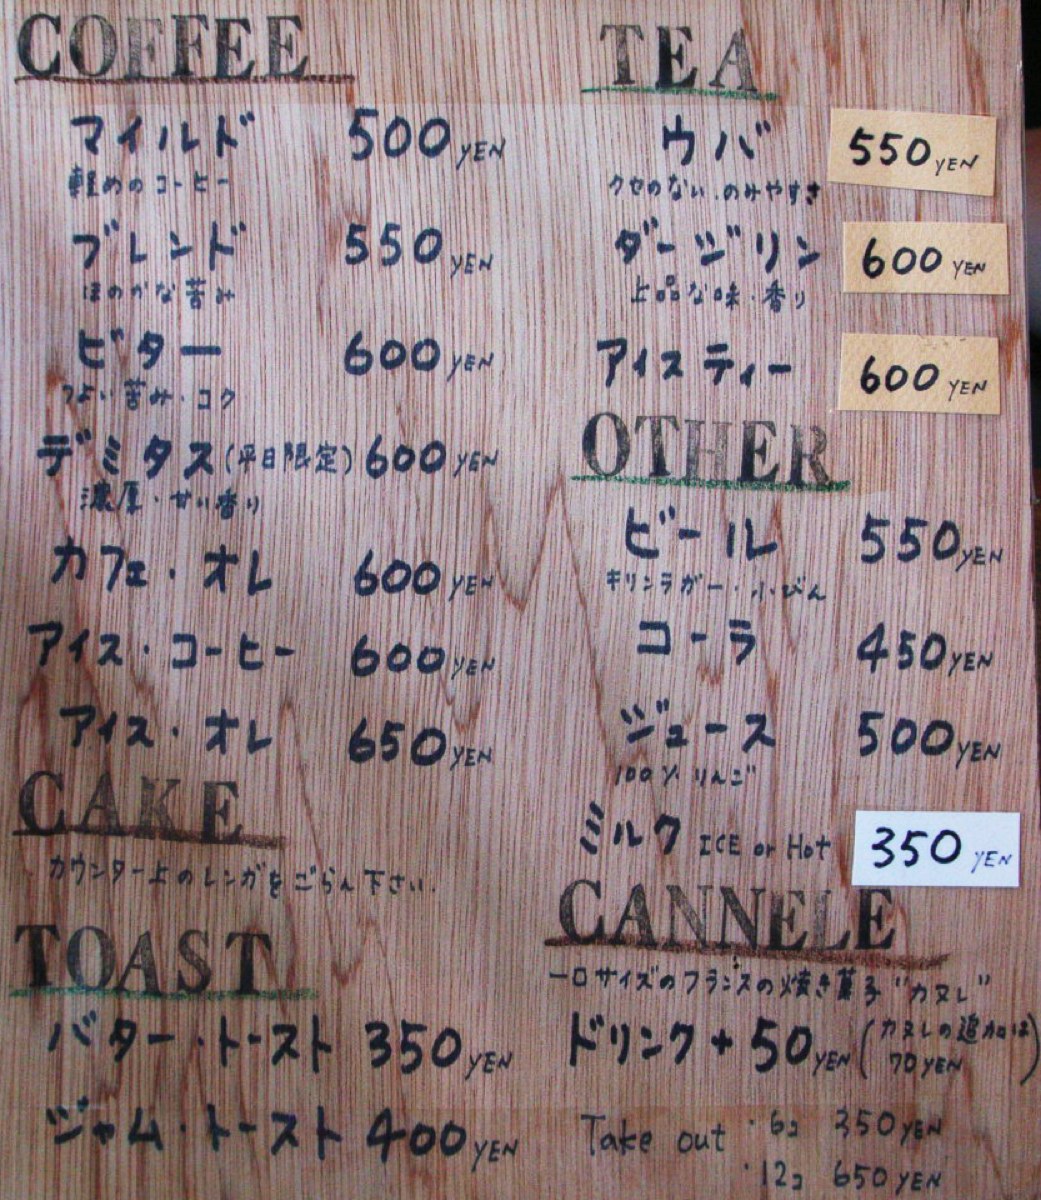 COFFEE
マイルド 500 YEN
軽めのコーヒー
ブレンド 550 YEN
ほのかな苦み
ビター 600 YEN
つよい苦み・コク
デミタス(平日限定) 600 YEN
濃厚・甘い香り
カフェ・オレ 600 YEN
アイス・コーヒー 600 YEN
アイス・オレ 650 YEN
CAKE
カウンター上のレンガをごらん下さい.
TOAST
バター・トースト 350 YEN
ジャム・トースト 400 YEN
TEA
ウバ 550 YEN
クセのない・のみやすさ
ダージリン 600 YEN
上品な味・香り
アイスティー 600 YEN
OTHER
ビール 550 YEN
キリンラガー・小びん
コーラ 450 YEN
ジュース 500 YEN
100% りんご
ミルク ICE or Hot 350 YEN
CANNELE
一口サイズのフランスの焼き菓子"カヌレ"
ドリンク + 50 YEN (カヌレの追加は
70 YEN)
Take out ・6コ 350 YEN
・12コ 650 YEN